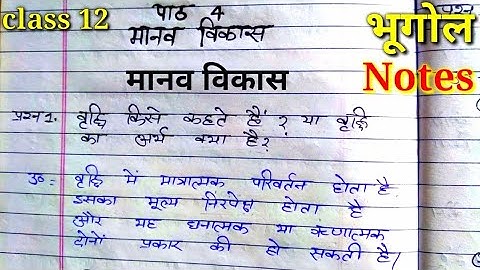 class 12
पाठ 4
मानव विकास
भूगोल
प्रश्न
मानव विकास
Notes
प्रश्न 1. वृद्धि किसे कहते हैं ? या वृद्धि
का अर्थ क्या है?
उ० : वृद्धि में मात्रात्मक परिवर्तन होता है
इसका मूल्य निरपेक्ष होता है
और यह धनात्मक या ऋणात्मक
दोनों प्रकार की हो सकती है।